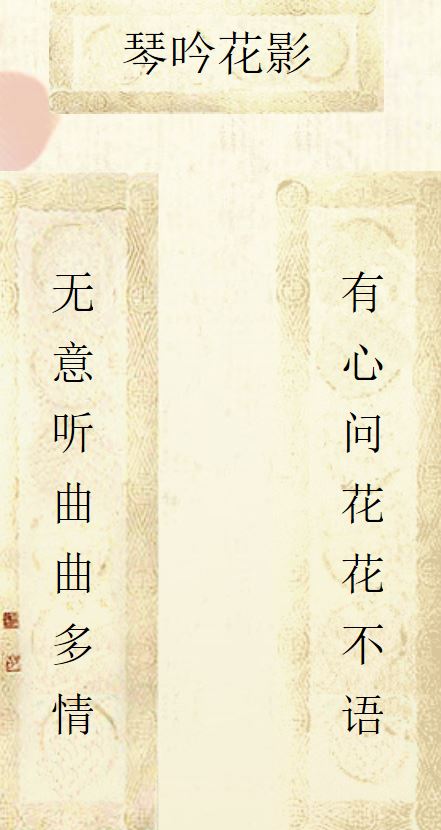 琴吟花影
有心问花花不语
无意听曲曲多情